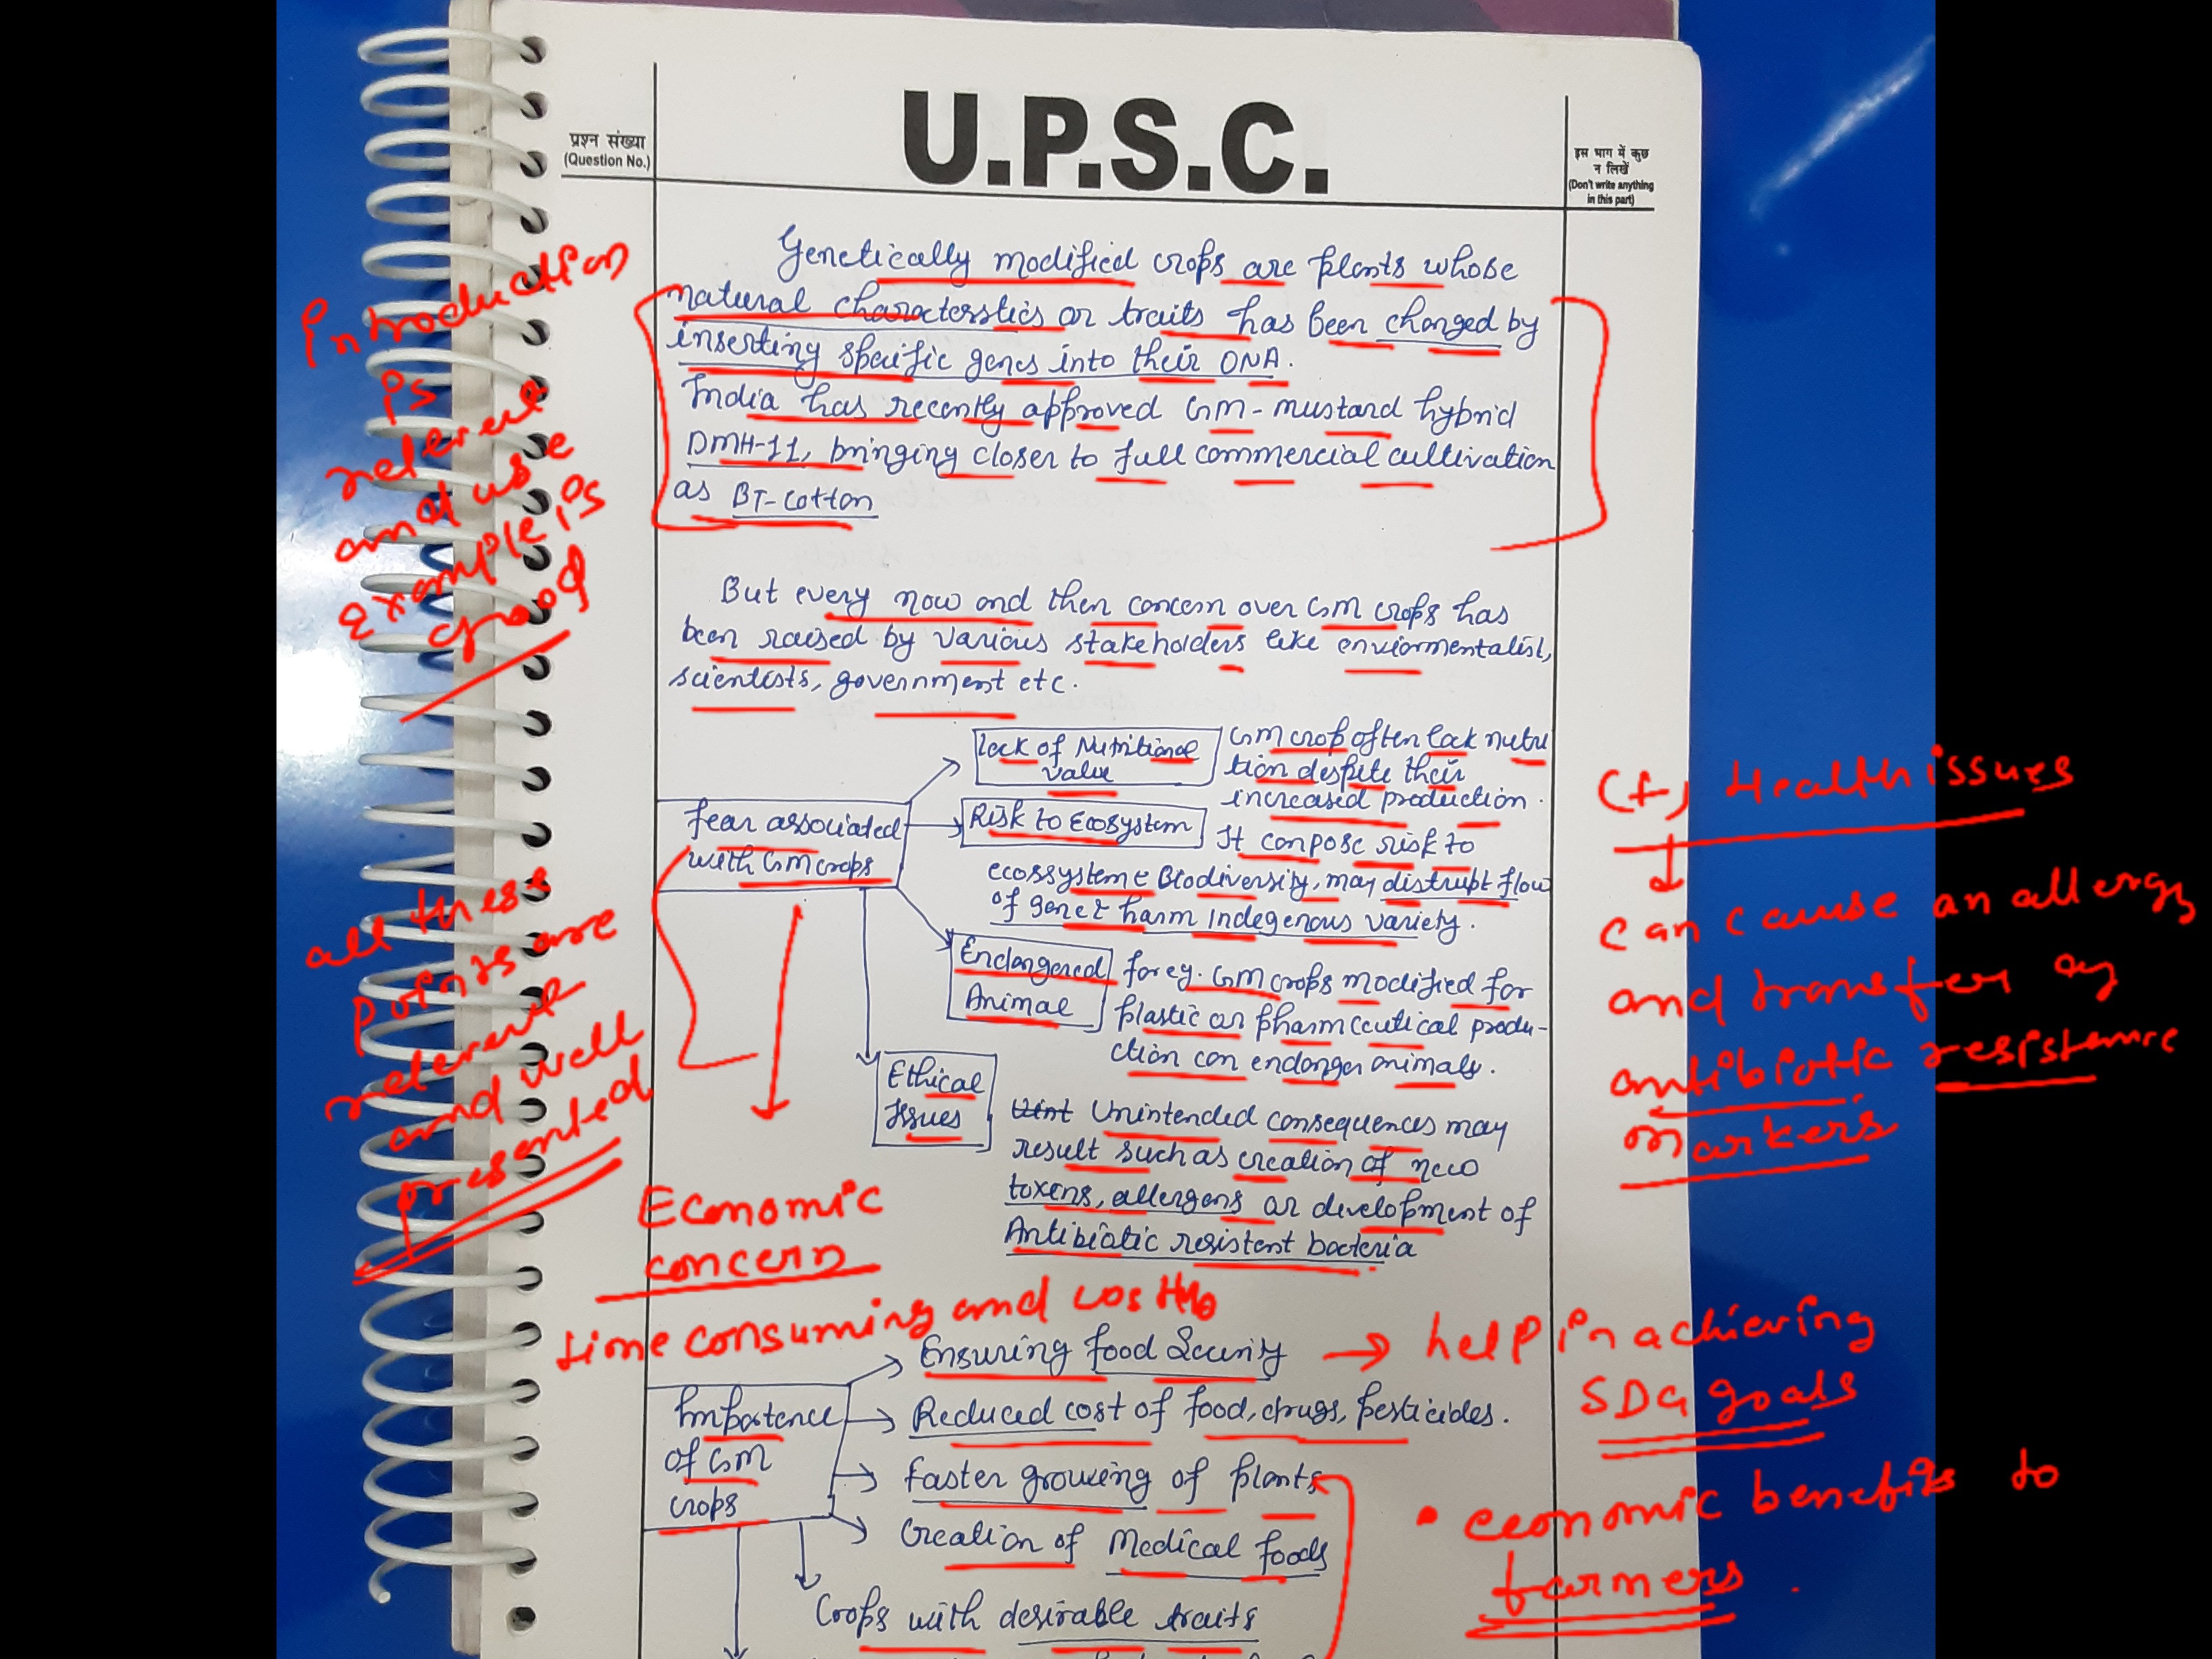 U.P.S.C.
प्रश्न संख्या
(Question No.)
इस भाग में कुछ
न लिखें
(Don't write anything
in this part)
Genetically modified crops are plants whose
natural characterstics or traits has been changed by
inserting specific genes into their DNA.
India has recently approved GM-mustard hybrid
DMH-11, bringing closer to full commercial cultivation
as BT-cotton
Introduction
is
relevent
and use
example is
good
But every now and then concern over GM crops has
been raised by various stakeholders like enviormentalist,
scientists, government etc.
fear associated
with GM crops
lack of Nutritional
value
GM crop often lack nutri
tion despite their
increased production.
Risk to Ecosystem
It can pose risk to
ecossystem & Biodiversity, may distrupt flow
of gene & harm indegenous variety.
Endangered
Animal
for eg. GM crops modified for
plastic or pharmceutical produ-
ction can endanger animals.
Ethical
Issues
Unintended consequences may
result such as creation of new
toxens, allergens or development of
Antibiotic resistent bacteria
all thess
points are
relevent
and well
presented
(+) Health issues
can cause an allergy
and transfer og
antibiotic resistence
markers
Economic
concern
time consuming and
Importence
of GM
crops
Ensuring food Security
→ help in achieving
SDG goals
Reduced cost of food, drugs, pesticides.
faster growing of plants
Creation of Medical foods
Crops with desirable traits
• economic benefits to
farmers.